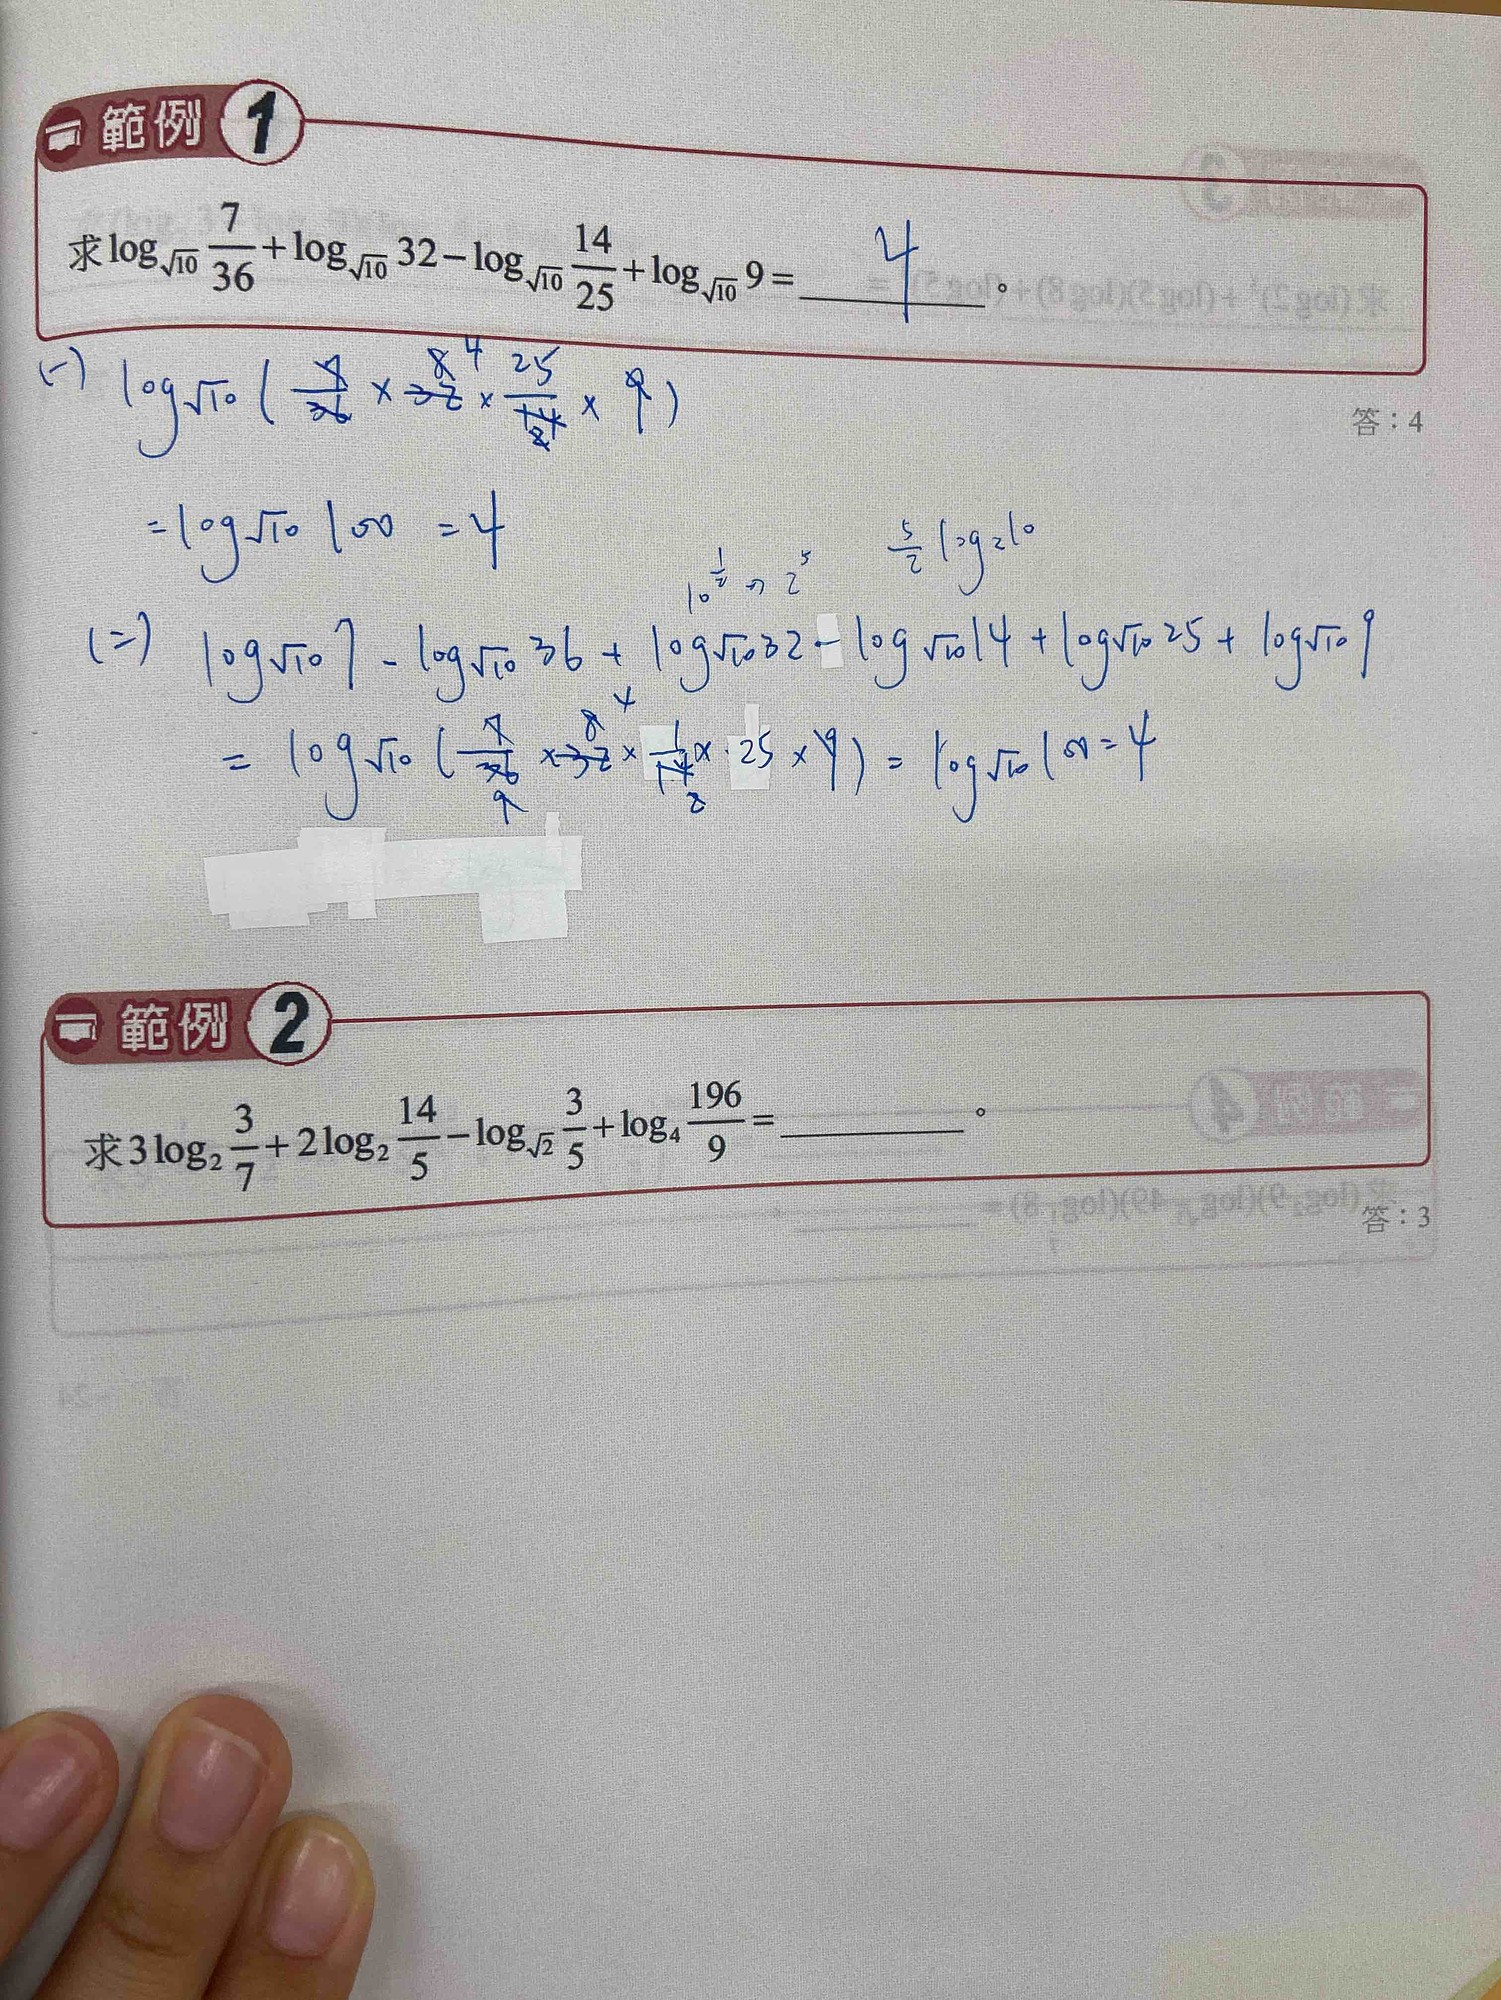 範例 1
求 log_√10 7/36 + log_√10 32 − log_√10 14/25 + log_√10 9 = 4 。
答：4
(一) log√10 ( 7/36 × 32 × 25/14 × 9 )
8 4
2
= log√10 100 = 4
10^(1/2) → 2^5
5/2 log 2 10
(二) log√10 7 - log√10 36 + log√10 32 - log√10 14 + log√10 25 + log√10 9
= log√10 ( 7/36 × 32 × 1/14 × 25 × 9 ) = log√10 100 = 4
8 4
9 2
範例 2
求 3 log_2 3/7 + 2 log_2 14/5 − log_√2 3/5 + log_4 196/9 = ______ 。
答：3